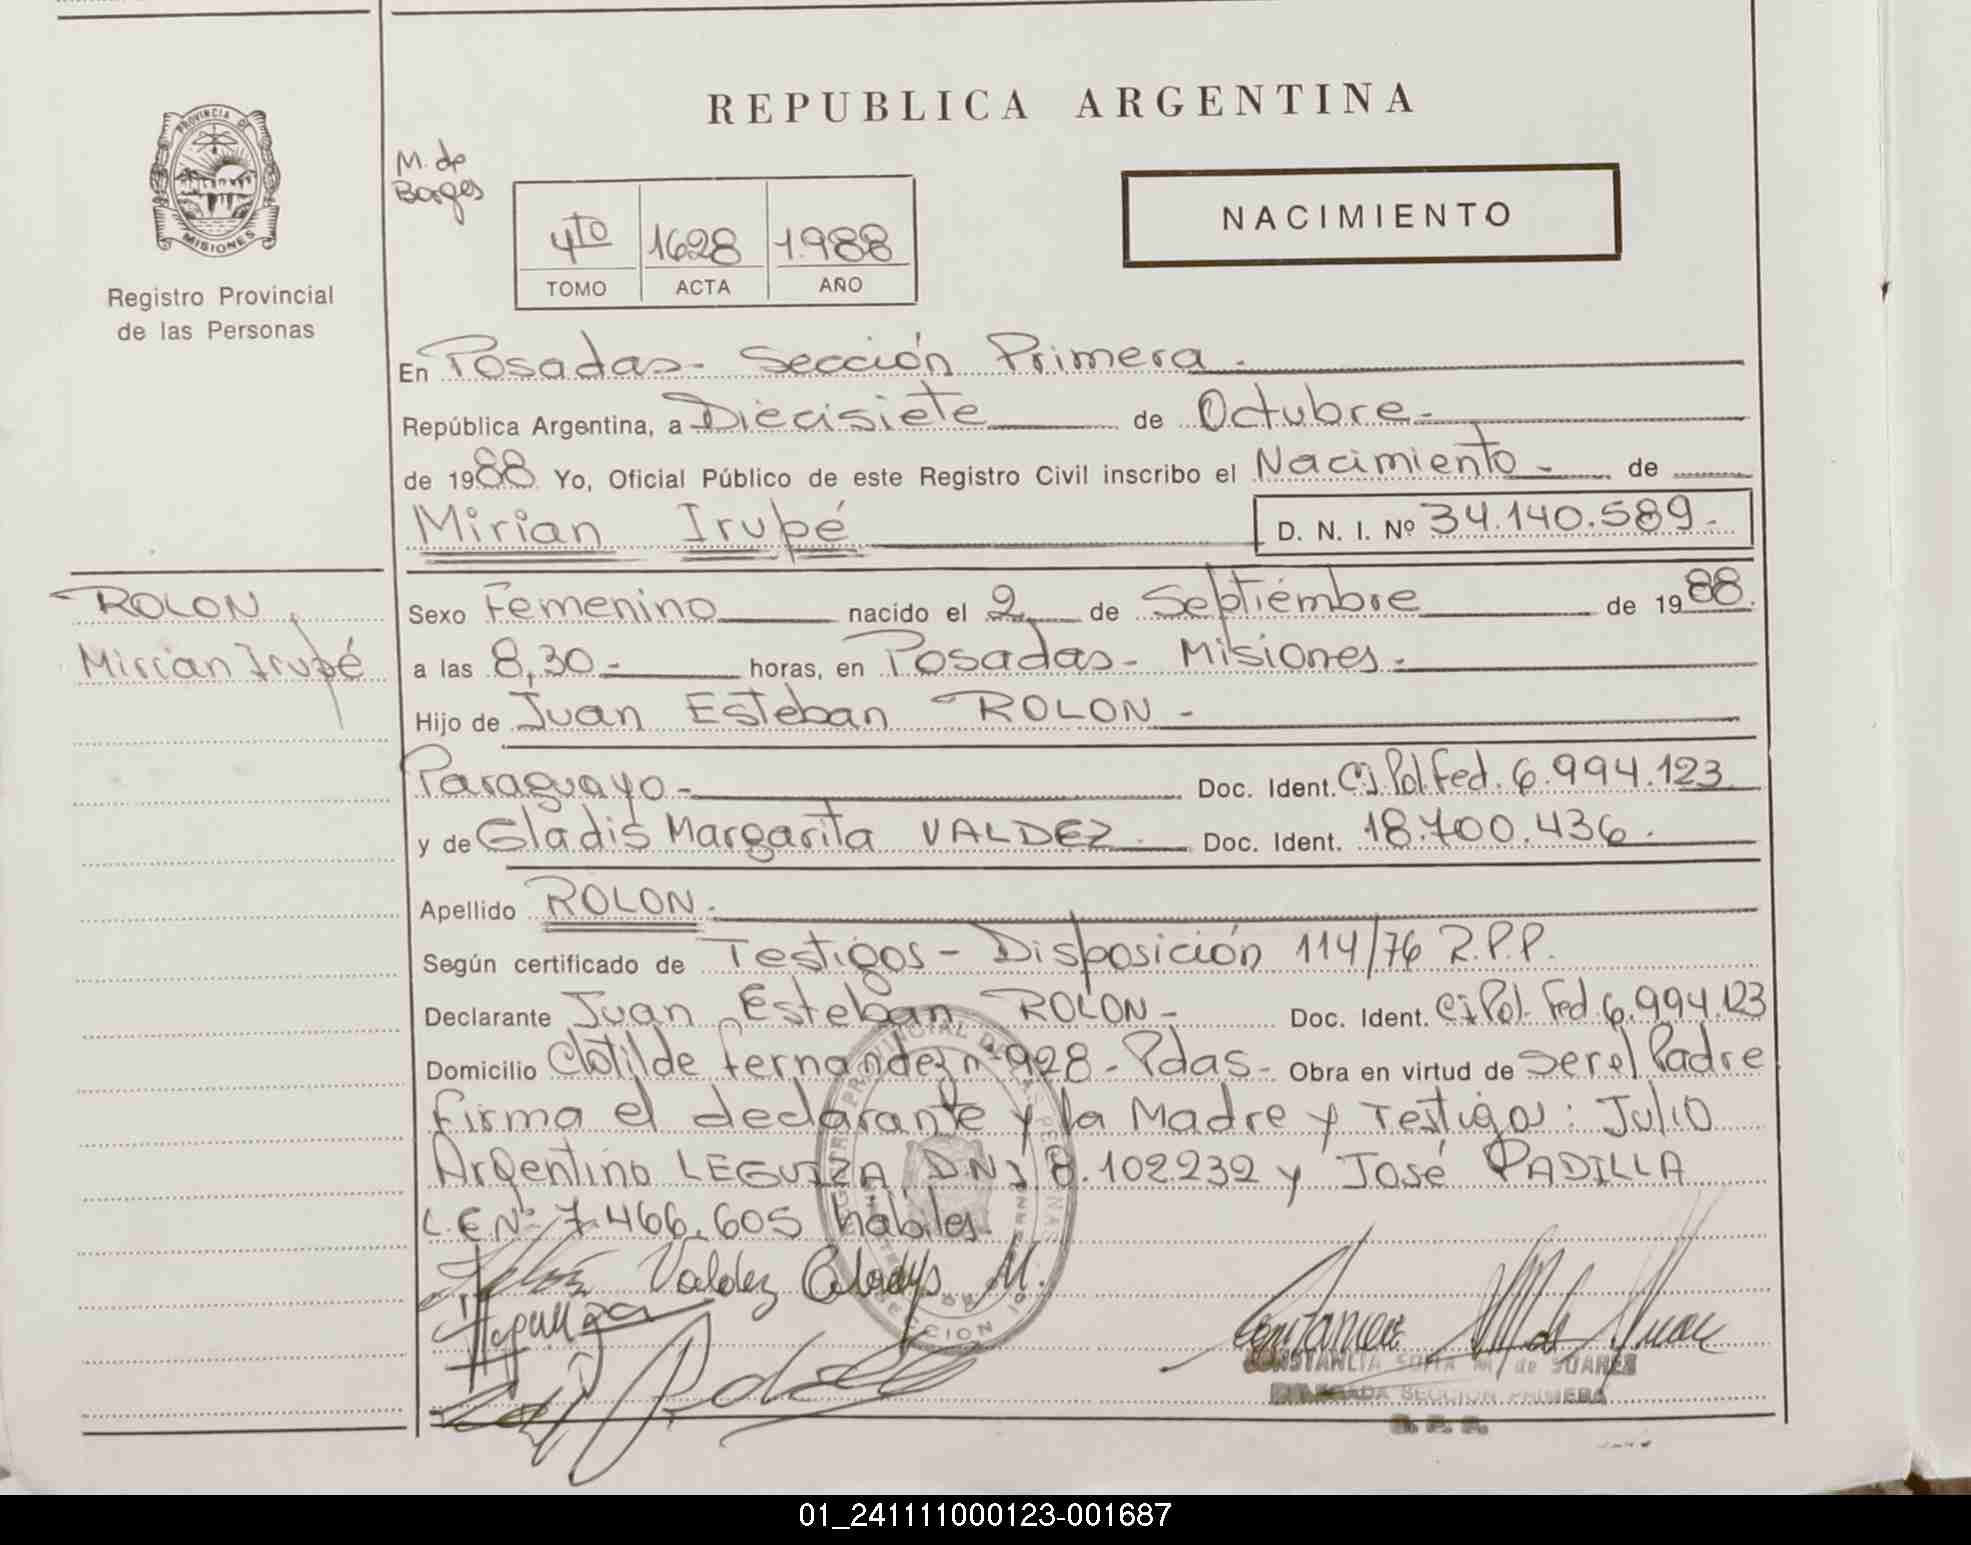 REPUBLICA ARGENTINA
PROVINCIA DE
MISIONES
Registro Provincial
de las Personas
M. de
Borges
NACIMIENTO
4TO 1628 1.988
TOMO ACTA AÑO
En Posadas- Sección Primera.
República Argentina, a Diecisiete de Octubre-
de 1988 Yo, Oficial Público de este Registro Civil inscribo el Nacimiento- de
Mirian Irupé D. N. I. Nº 34.140.589-
ROLON
Mirian Irupé
Sexo Femenino nacido el 2 de Septiembre de 1988.
a las 8,30- horas, en Posadas- Misiones-
Hijo de Juan Esteban ROLON-
Paraguayo- Doc. Ident. C.I. Pol. Fed. 6.994.123
y de Gladis Margarita VALDEZ. Doc. Ident. 18.700.436.
Apellido ROLON.
Según certificado de Testigos- Disposición 114/76 R.P.P.
Declarante Juan Esteban ROLON- Doc. Ident. C.I. Pol. Fed 6.994.123
Domicilio Clotilde Fernandez nº 928- Pdas- Obra en virtud de ser el Padre
Firma el declarante y la Madre y Testigos: Julio
Argentino LEGUIZA DNI 8.102232 y José PADILLA
L.E Nº 7.466.605 hábiles.
Valdez Gladys M.
CONSTANCIA SOFIA M. de SUAREZ
DELEGADA SECCION PRIMERA
01_241111000123-001687